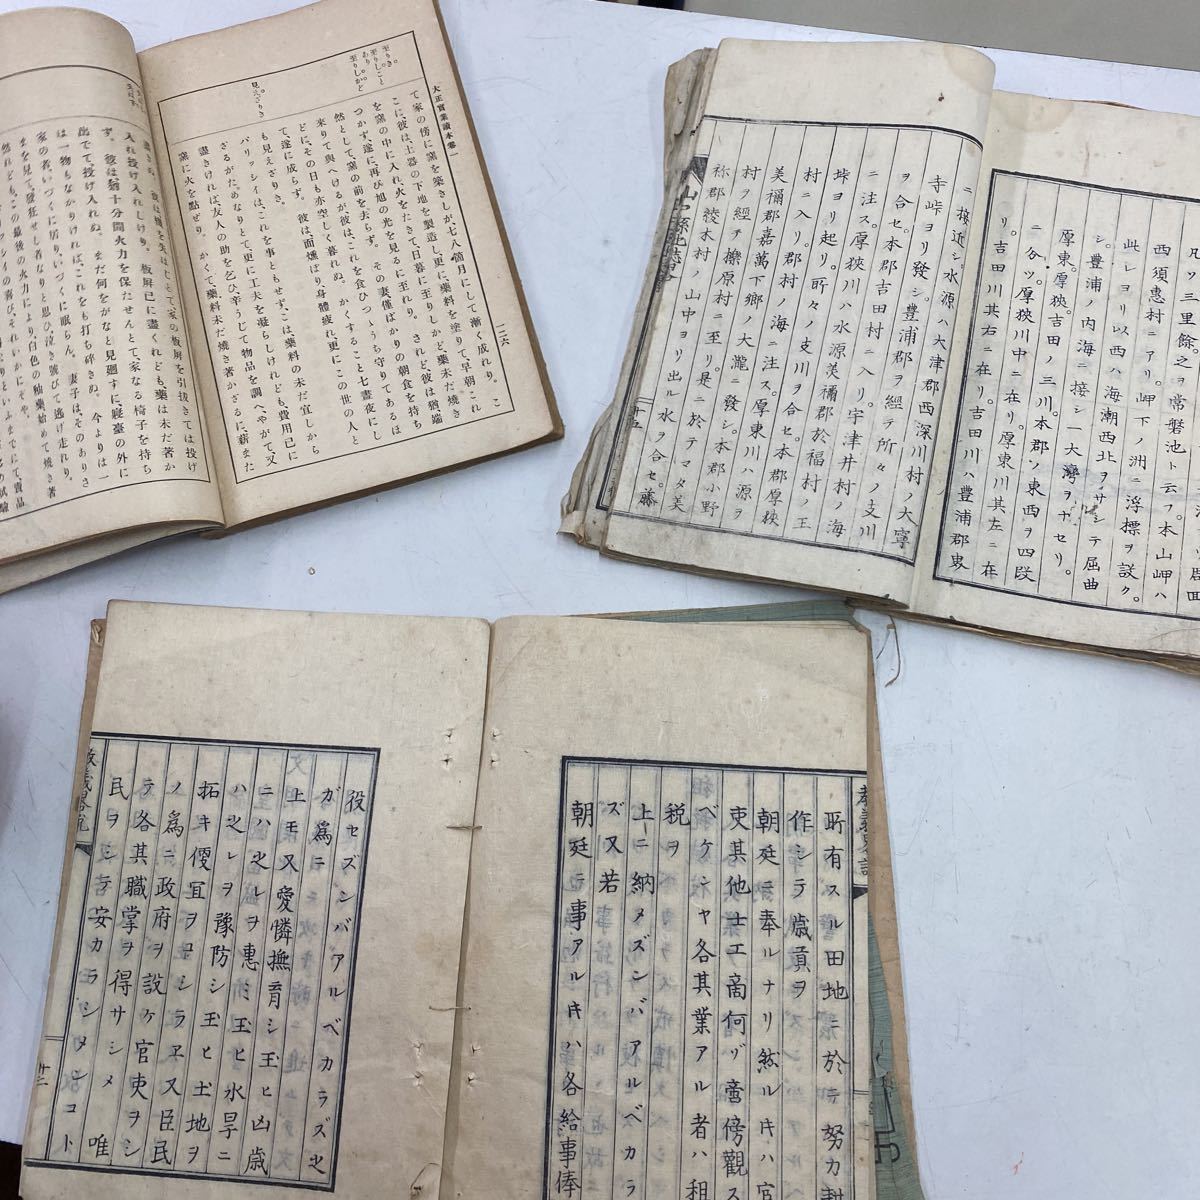 大正實業讀本卷一
一二六
至りき。
至りしこと
あり。
至りしかど
見えざりき
て家の傍に窯を築きしが七八箇月にして漸く成れり。こ
こに、彼は、土器の下地を製造し、更に藥料を塗りて、早朝これ
を窯の中に入れ、火をたきて日暮に至りしかど、藥未だ燒き
つかず、遂に再び旭の光を見るに至れり。されど、彼は猶端
然として、窯の前を去らず。その妻、僅ばかりの朝食を持ち
來りて與へけるが、彼は、これを食ひつゝうち守りてあるほ
どに、その日も亦空しく暮れぬ。かくすること七晝夜にし
て、遂に成らず。彼は、面燻ばり身體疲れ、更にこの世の人と
も見えざりき。
パリッシイは、これを事ともせず、こは、藥料の未だ宜しから
ざるがためなりとて、更に工夫を凝らしけれども、費用已に
盡きければ、友人の助を乞ひ、辛うじて物品を調へ、やがて、又
窯に火を點ぜり。かくて、藥料未だ燒き著かざるに、薪また
入れ投け入れしけり。板屏已に盡くれども、藥は未だ著か
ず。彼は、猶十分間火力を保たせんとて、家なる椅子を持ち
出でて、投け入れぬ。まだ何をがなと見廻すに、寢臺の外に
は一物もなかりければ、これをも打ち碎きぬ。今よりは一
家の者、いづくに居りいづくに眠らん。妻子は、そのありさ
まを見て、發狂せし者なりと思ひ、泣き號びて逃げ走れり。
然れども、この最後の火力により、白色の釉藥始めて燒き著
凡ソ三里餘之ヲ常磐池ト云フ本山岬ハ
西須惠村ニアリ。岬下ノ洲ニ浮標ヲ設ク。
此レヨリ以西ハ海潮西北ヲサシテ屈曲
シ。豊浦ノ内海ニ接シ一大灣ヲナセリ。
厚東。厚狹。吉田ノ三川本郡ソ東西ヲ四段
ニ分ツ。厚狹川中ニ在リ。厚東川其左ニ在
リ。吉田川其右ニ在リ。吉田川ハ豊浦郡東
ニ接近シ水源ハ大津郡西深川村ノ大寧
寺峠ヨリ發シ豊浦郡ヲ經テ所々ノ支川
ヲ合セ。本郡吉田村ニ入リ。宇津井村ノ海
ニ注ス。厚狹川ハ水源美禰郡於福村ノ王
峠ヨリ起リ。所々ノ支川ヲ合セ。本郡厚狹
村ニ入リ。郡村ノ海ニ注ス。厚東川ハ源ヲ
美禰郡嘉萬下鄉ノ大瀧ニ發シ。本郡小野
村ヲ經テ擽原村ニ至リ。是ニ於テマタ美
祢郡綾木村ノ山中ヨリ出ル水ヲ合セ。藤
十五
所有スル田地ニ於テ努力耕
作シテ歳貢ヲ
朝廷ニ奉ルナリ然ルキハ官
吏其他士工商何ゾ啻傍觀ス
ベケンヤ各其業アル者ハ租
税ヲ
上ニ納メズンバアルベカラ
ズ又若
朝廷テ事アルキハ各給事俸
役セズンバアルベカラズ之
ガ爲ニ
上モ又愛憐撫育シ玉ヒ凶歳
ニハ之レヲ惠ミ玉ヒ水旱ニ
ハ之レヲ豫防シ玉ヒ土地ヲ
拓キ便冝ヲ
ノ爲ニ政府ヲ設ケ官吏ヲシ
テ各其職掌ヲ得サシメ唯
民ヲシテ安カラシメンコト